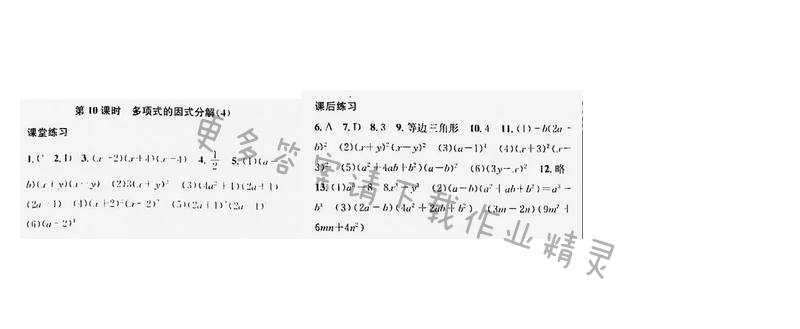 第10课时 多项式的因式分解(4)
课堂练习
1.C 2.D 3.(x-2)(x+4)(x-4) 4.1/2 5.(1)(a-
b)(x+y)(x-y) (2)3(x+y)² (3)(4a²+1)(2a+1)
(2a-1) (4)(x+2)²(x-2)² (5)(2a+1)²(2a-1)²
(6)(a-2)⁴
课后练习
6.A 7.D 8.3 9.等边三角形 10.4 11.(1)-b(2a-
b)² (2)(x+y)²(x-y)² (3)(a-1)⁴ (4)(x+3)²(x-
3)² (5)(a²+4ab+b²)(a-b)² (6)(3y-x)² 12.略
13.(1)a³-8 8x³-y³ (2)(a-b)(a²+ab+b²)=a³-
b³ (3)(2a-b)(4a²+2ab+b²) (3m-2n)(9m²+
6mn+4n²)
更多答案请下载作业精灵